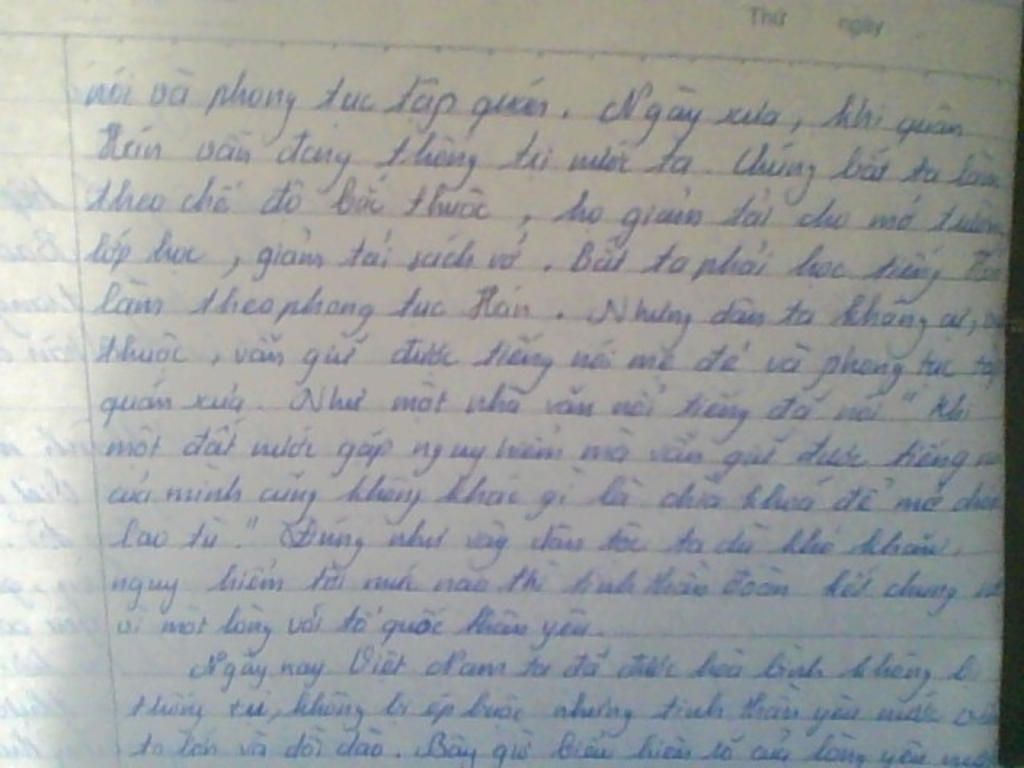 Thứ ngày
nói và phong tục tập quán. Ngày xưa, khi quân
Hán vẫn đang thống trị nước ta. Chúng bắt ta làm
theo chế độ bắc thuộc, họ giảm tải cho mở
lớp học, giảm tải sách vở. Bắt ta phải học tiếng Hán
làm theo phong tục Hán. Nhưng dân ta không
thuộc, vẫn giữ được tiếng nói mẹ đẻ và phong tục tập
quán xưa. Như một nhà văn nổi tiếng đã nói "Khi
một đất nước gặp nguy hiểm mà vẫn giữ được tiếng
của mình cũng không khác gì là chìa khoá để mở
lao tù." Đúng như vậy dân tộc ta dù khó khăn,
nguy hiểm tới mức nào thì tinh thần đoàn kết chung
vì một lòng với tổ quốc thân yêu.
Ngày nay Việt Nam ta đã được hoà bình không bị
thống trị, không bị ép buộc nhưng tinh thần yêu nước của
ta lớn và dồi dào. Bây giờ biểu hiện rõ của lòng yêu nước